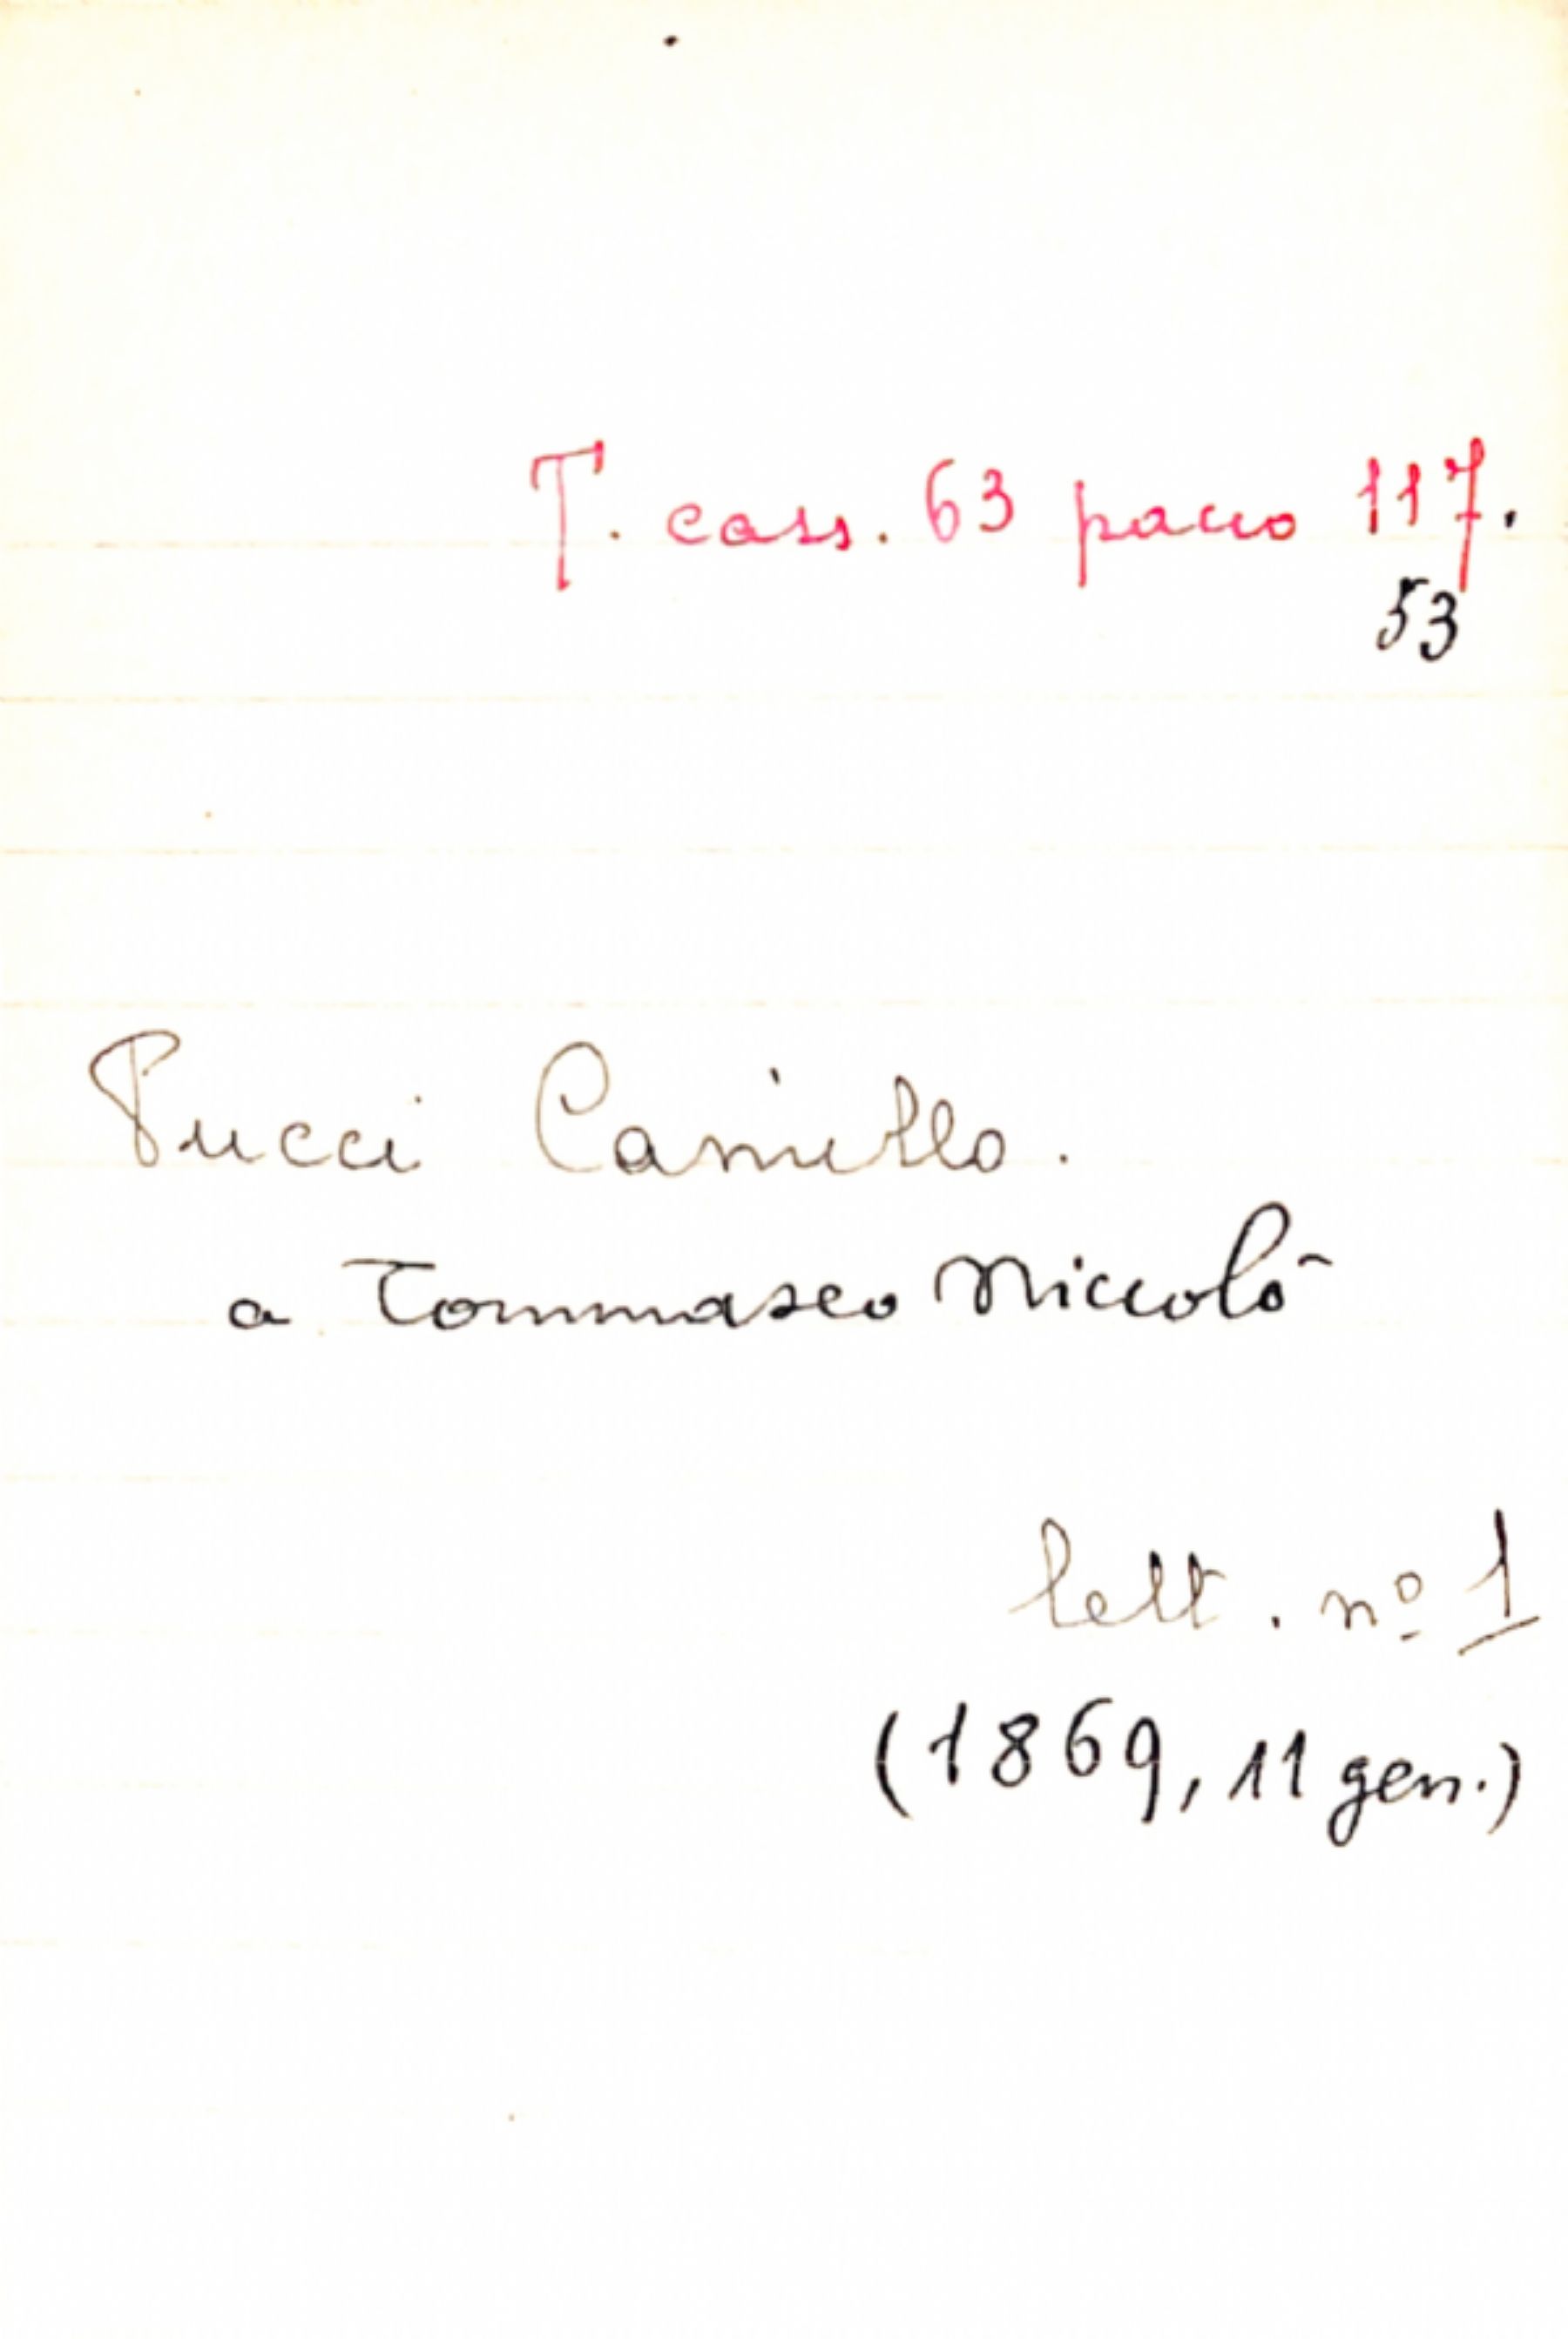 T. cass. 63 pacco 117.
53
Pucci Camillo.
a Tommaseo Niccolò
lett. nº 1
(1869, 11 gen.)